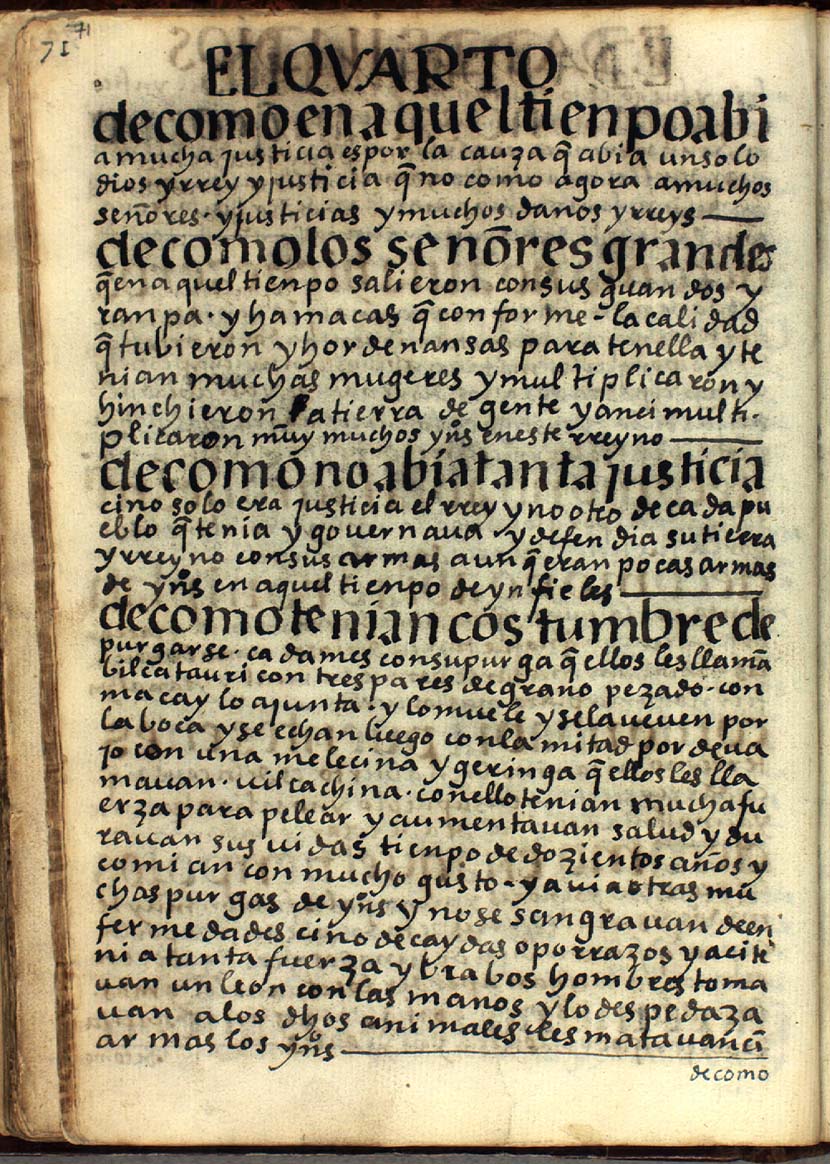 71 71
EL QVARTO
de como en aquel tienpo abi
a mucha justicia es por la cauza q̃ abia un solo
dios y rrey y justicia q̃ no como agora a muchos
señores · y justicias y muchos daños y rreys
de como los señores grandes
q̃ en aquel tienpo salieron con sus guandos y
ranpa · y hamacas q̃ conforme - la calidad
q̃ tubieron y hordenansas para tenella y te
nian muchas mugeres y multiplicaron y
hinchieron la tierra de gente y anci multi-
plicaron muy muchos yn̄s en este rreyno
de como no abia tanta justicia
cino solo era justicia el rrey y no otro de cada pu
eblo q̃ tenia y governava y defendia su tierra
y rreyno con sus armas aunq̃ eran pocas armas
de yn̄s en aquel tienpo de ynfieles
de como tenian costumbre de
purgarse · cada mes con su purga q̃ ellos les llamã
bilcatauri con tres pares de grano pezado · con
macay lo ajunta · y lo muele y se la veven por
la boca y se echan luego con la mitad por deva
jo con una melecina y geringa q̃ ellos les lla
mavan · vilcachina · con ello tenian mucha fu
erza para pelear y aumentavan salud y du
ravan sus vidas tienpo de dozientos años y
comian con mucho gusto - y avia otras mu
chas purgas de yn̄s y no se sangravan de en
fermedades cino de caydas o porrazos y aci te
nia tanta fuerza y brabos hombres toma
van un leon con las manos y lo despedaza
van a los dhos animales les matavan ci
armas los yn̄s
de como